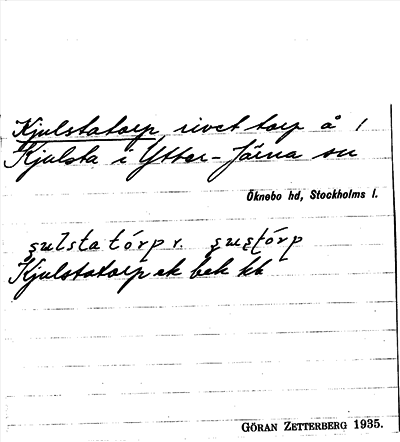 Kjulstatorp, rivet torp å 1
Kjulsta i Ytter-Järna sn
Öknebo hd, Stockholms l.
şulsta tórp r. şuştórp
Kjulstatorp ek bek kk
GÖRAN ZETTERBERG 1935.